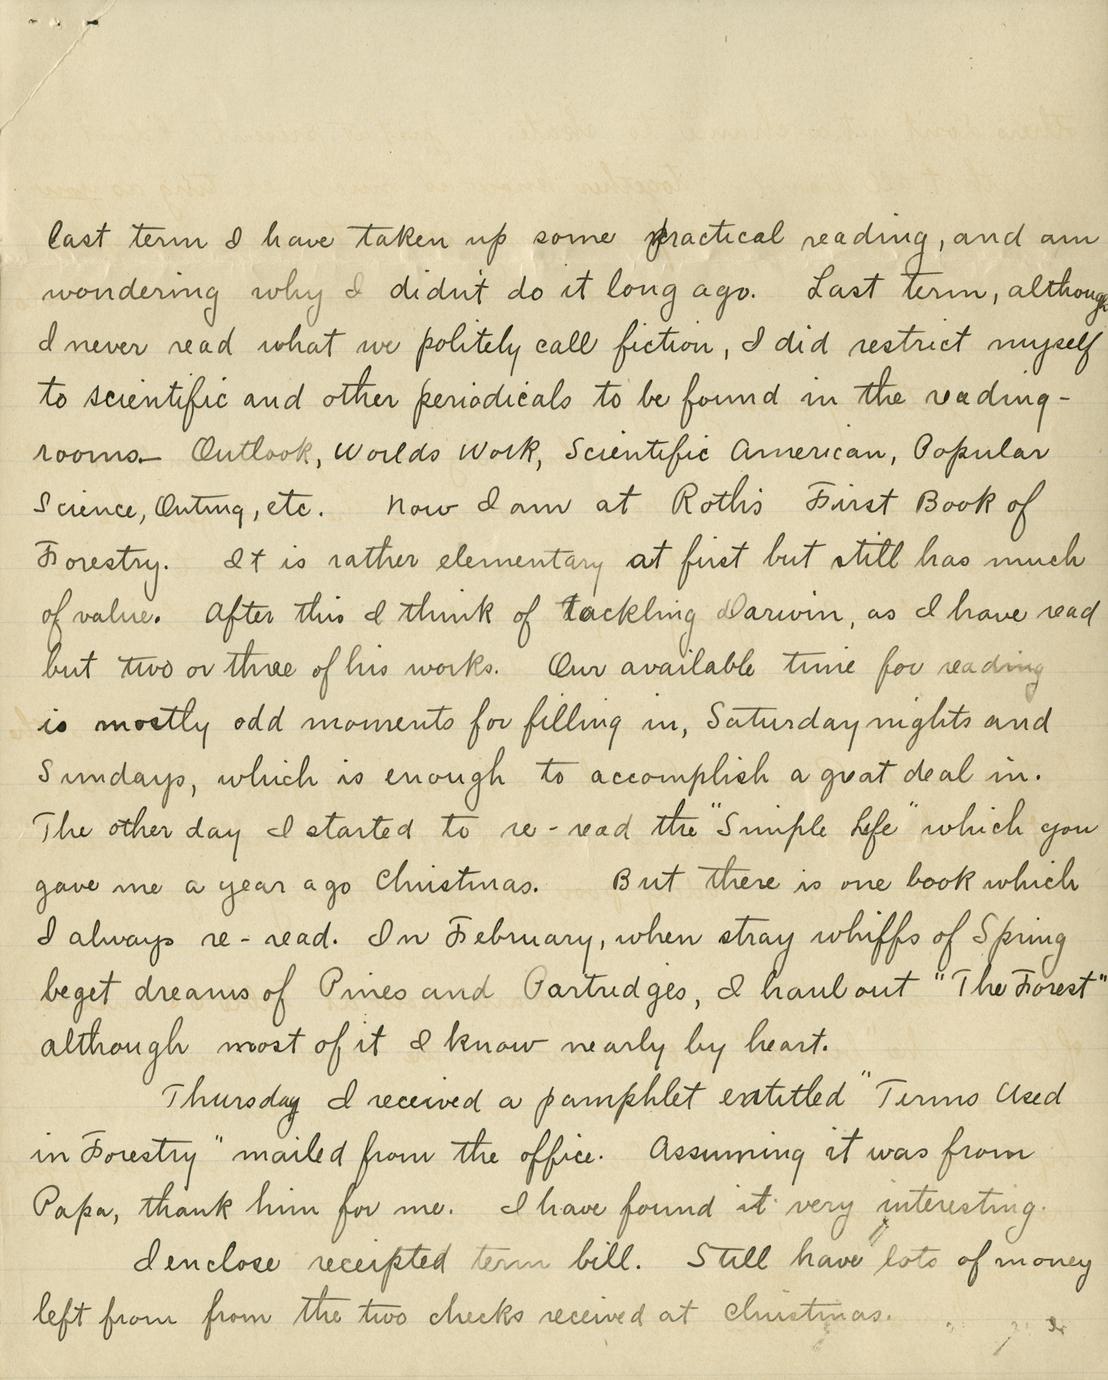 last term I have taken up some practical reading, and am
wondering why I didn't do it long ago. Last term, although
I never read what we politely call fiction, I did restrict myself
to scientific and other periodicals to be found in the reading-
rooms— Outlook, Worlds Work, Scientific American, Popular
Science, Outing, etc. Now I am at Roth's First Book of
Forestry. It is rather elementary at first but still has much
of value. After this I think of tackling Darwin, as I have read
but two or three of his works. Our available time for reading
is mostly odd moments for filling in, Saturday nights and
Sundays, which is enough to accomplish a great deal in.
The other day I started to re-read the "Simple Life" which you
gave me a year ago Christmas. But there is one book which
I always re-read. In February, when stray whiffs of Spring
beget dreams of Pines and Partridges, I haul out "The Forest"
although most of it I know nearly by heart.
Thursday I received a pamphlet entitled "Terms Used
in Forestry" mailed from the office. Assuming it was from
Papa, thank him for me. I have found it very interesting.
I enclose receipted term bill. Still have lots of money
left from from the two checks received at Christmas.